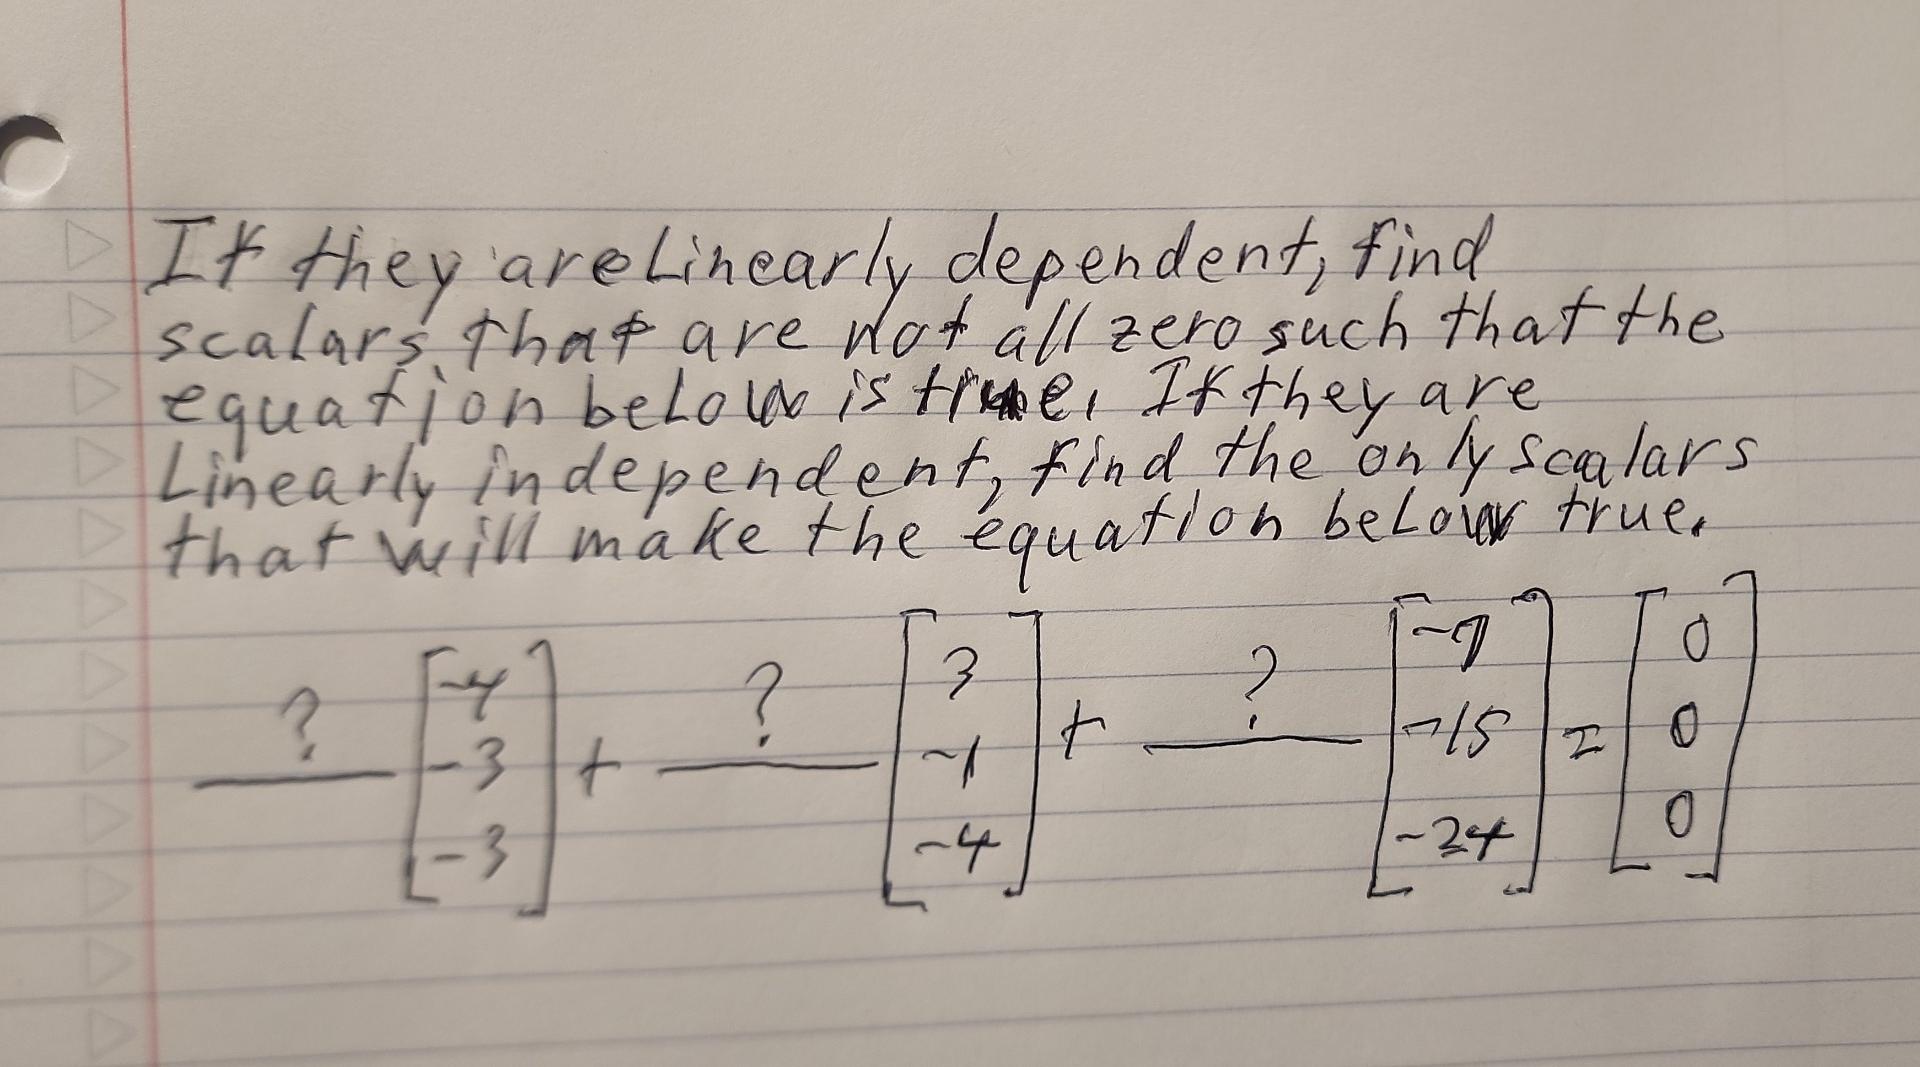 If they are Linearly dependent, find
scalars that are not all zero such that the
equation below is true. If they are
Linearly independent, find the only scalars
that will make the equation below true.
? [-4 -3 -3] + ? [3 -1 -4] + ? [-7 -15 -24] = [0 0 0]